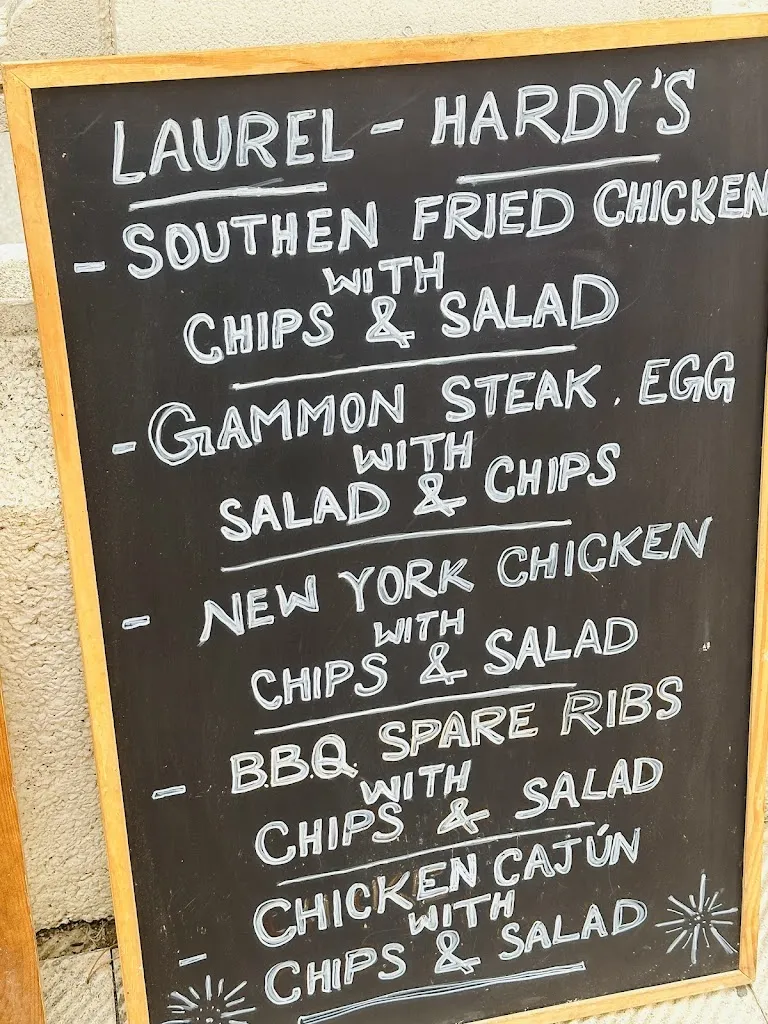 LAUREL - HARDY'S
- SOUTHEN FRIED CHICKEN
WITH
CHIPS & SALAD
- GAMMON STEAK, EGG
WITH
SALAD & CHIPS
- NEW YORK CHICKEN
WITH
CHIPS & SALAD
- B.B.Q. SPARE RIBS
WITH
CHIPS & SALAD
CHICKEN CAJÚN
WITH
- CHIPS & SALAD